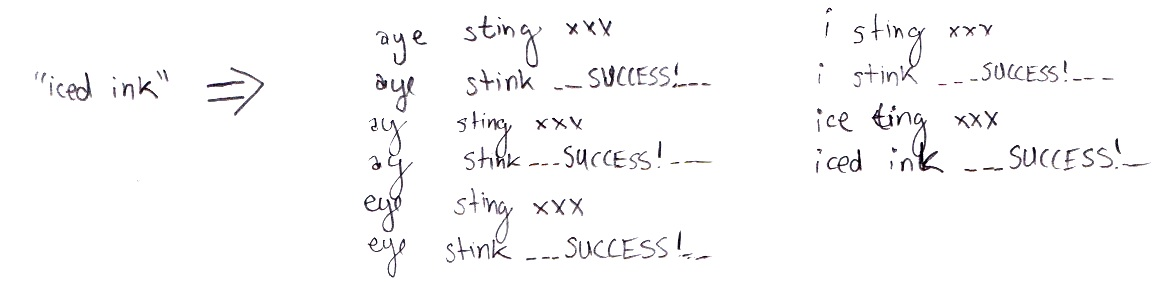 "iced ink" ⇒
aye sting xxx
aye stink ---SUCCESS!---
ay sting xxx
ay stink ---SUCCESS!---
eye sting xxx
eye stink ---SUCCESS!---
i sting xxx
i stink ---SUCCESS!---
ice ting xxx
iced ink ---SUCCESS!--